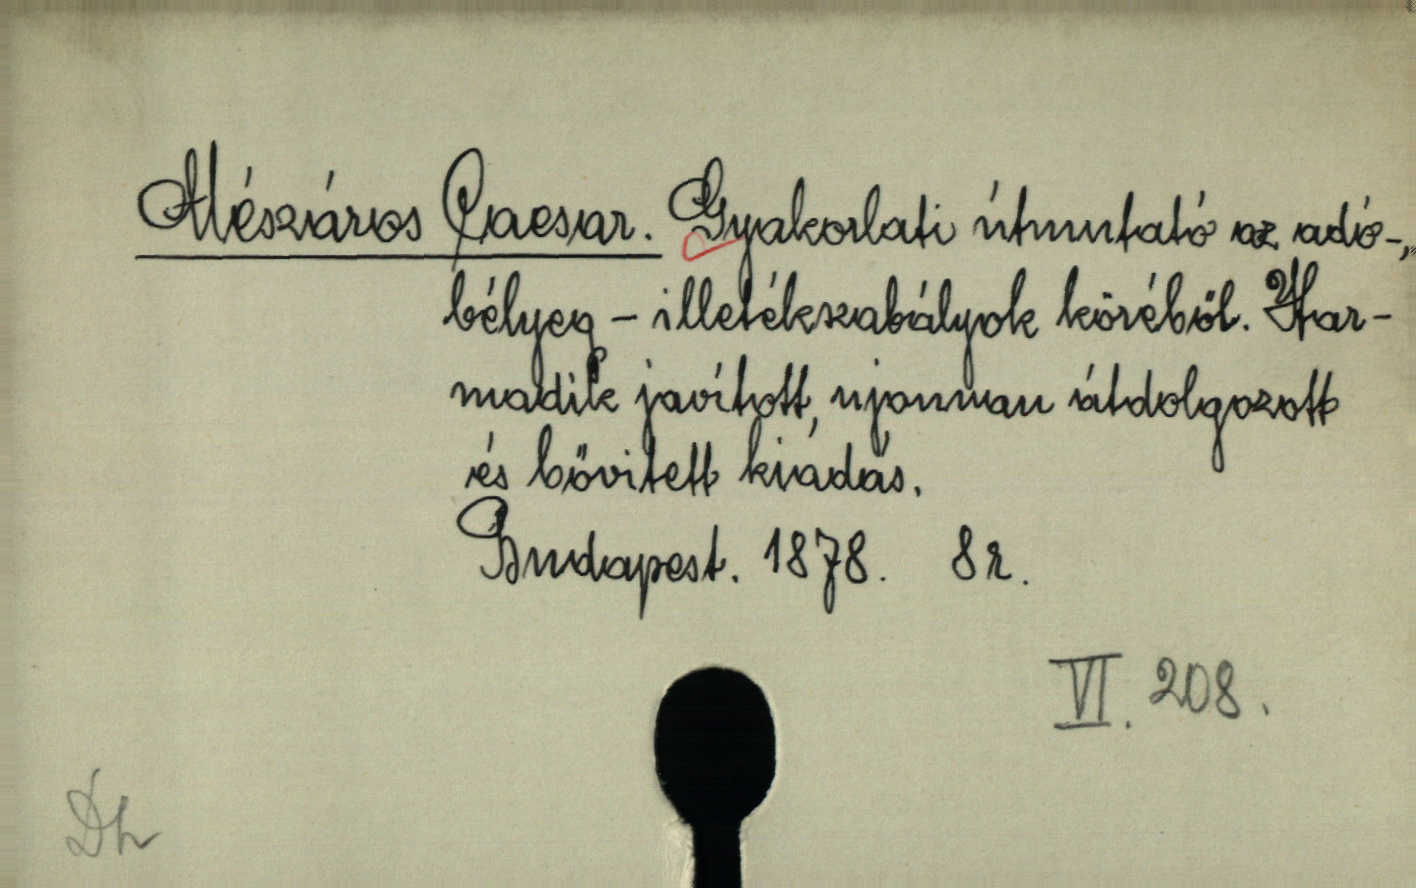 Mészáros Caesar. Gyakorlati útmutató az adó-,
bélyeg - illetékszabályok köréből. Har-
madik javított, ujonnan átdolgozott
és bővített kiadás.
Budapest. 1878. 8r.
VI. 208.